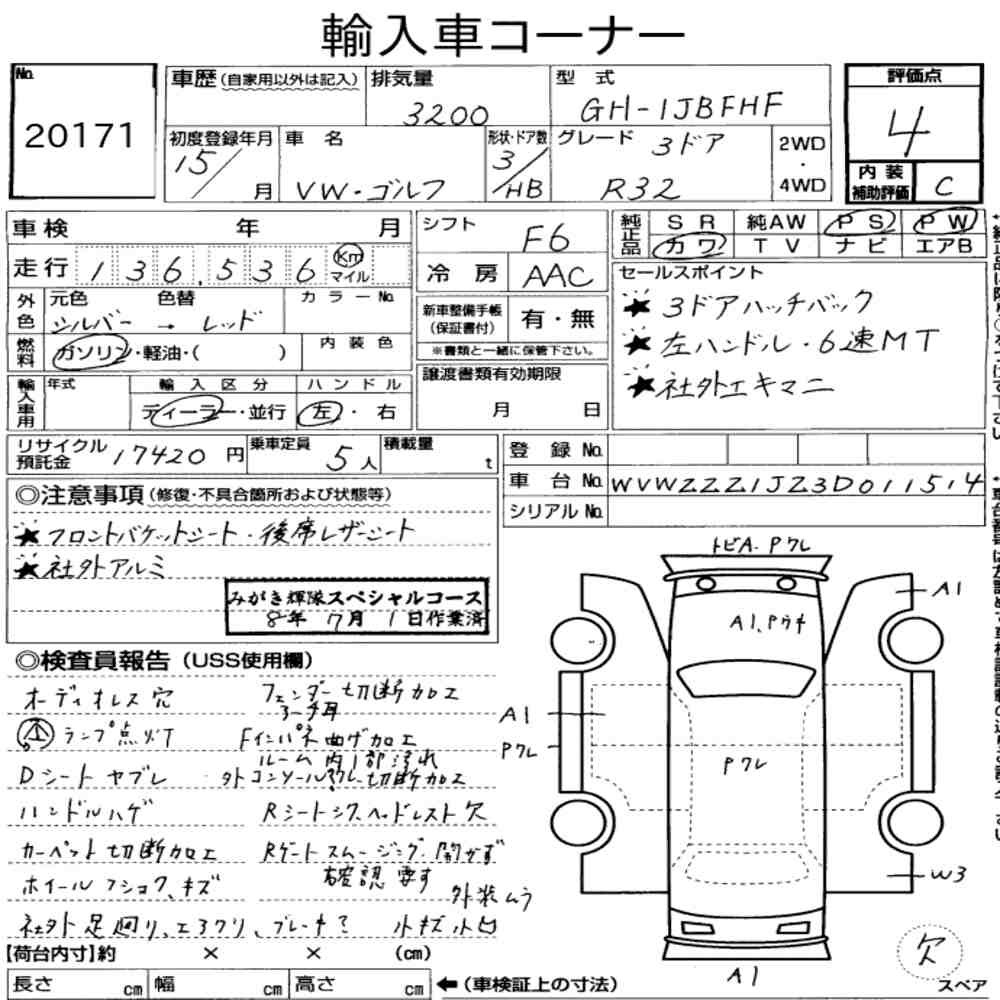 輸入車コーナー
No. 20171
車歴(自家用以外は記入)
排気量 3200
型式 GH-1JBFHF
評価点 4
内装補助評価 C
初度登録年月 15/ 月
車名 VW・ゴルフ
形状・ドア数 3/HB
グレード 3ドア R32
2WD・4WD
車検 年 月
シフト F6
純正品 SR 純AW PS PW
カワ TV ナビ エアB
走行 136,536 Km マイル
冷房 AAC
セールスポイント
★3ドアハッチバック
★左ハンドル・6速MT
★社外エキマニ
外色 元色 色替 カラーNo.
シルバー → レッド
新車整備手帳(保証書付) 有・無
※書類と一緒に保管下さい。
燃料 ガソリン・軽油・( ) 内装色
譲渡書類有効期限 月 日
輸入車用 年式 輸入区分 ハンドル
ディーラー・並行 左・右
リサイクル預託金 17420円
乗車定員 5人
積載量 t
登録No.
車台No. WVWZZZ1JZ3D011514
シリアルNo.
◎注意事項(修復・不具合箇所および状態等)
★フロントバケットシート・後席レザーシート
★社外アルミ
みがき輝隊スペシャルコース
8年 7月 1日作業済
◎検査員報告(USS使用欄)
オーディオレス穴 フェンダー切断加工
ランプ点灯 Fインパネ曲げ加工
ルーム内1部汚れ
Dシートヤブレ 外コンソール切断加工
ハンドルハゲ Rシートシワ、ヘッドレスト欠
カーペット切断加工 Rゲートスムージング、開かず
確認要す
ホイールフショク、キズ 外装ムラ
社外足廻り、エアクリ、ブレーキ? 小キズ小凹
トビA・Pワレ
A1
A1、Pウキ
A1
Pワレ
Pワレ
W3
A1
欠
スペア
【荷台内寸】約 × × (cm)
長さ cm 幅 cm 高さ cm ←(車検証上の寸法)